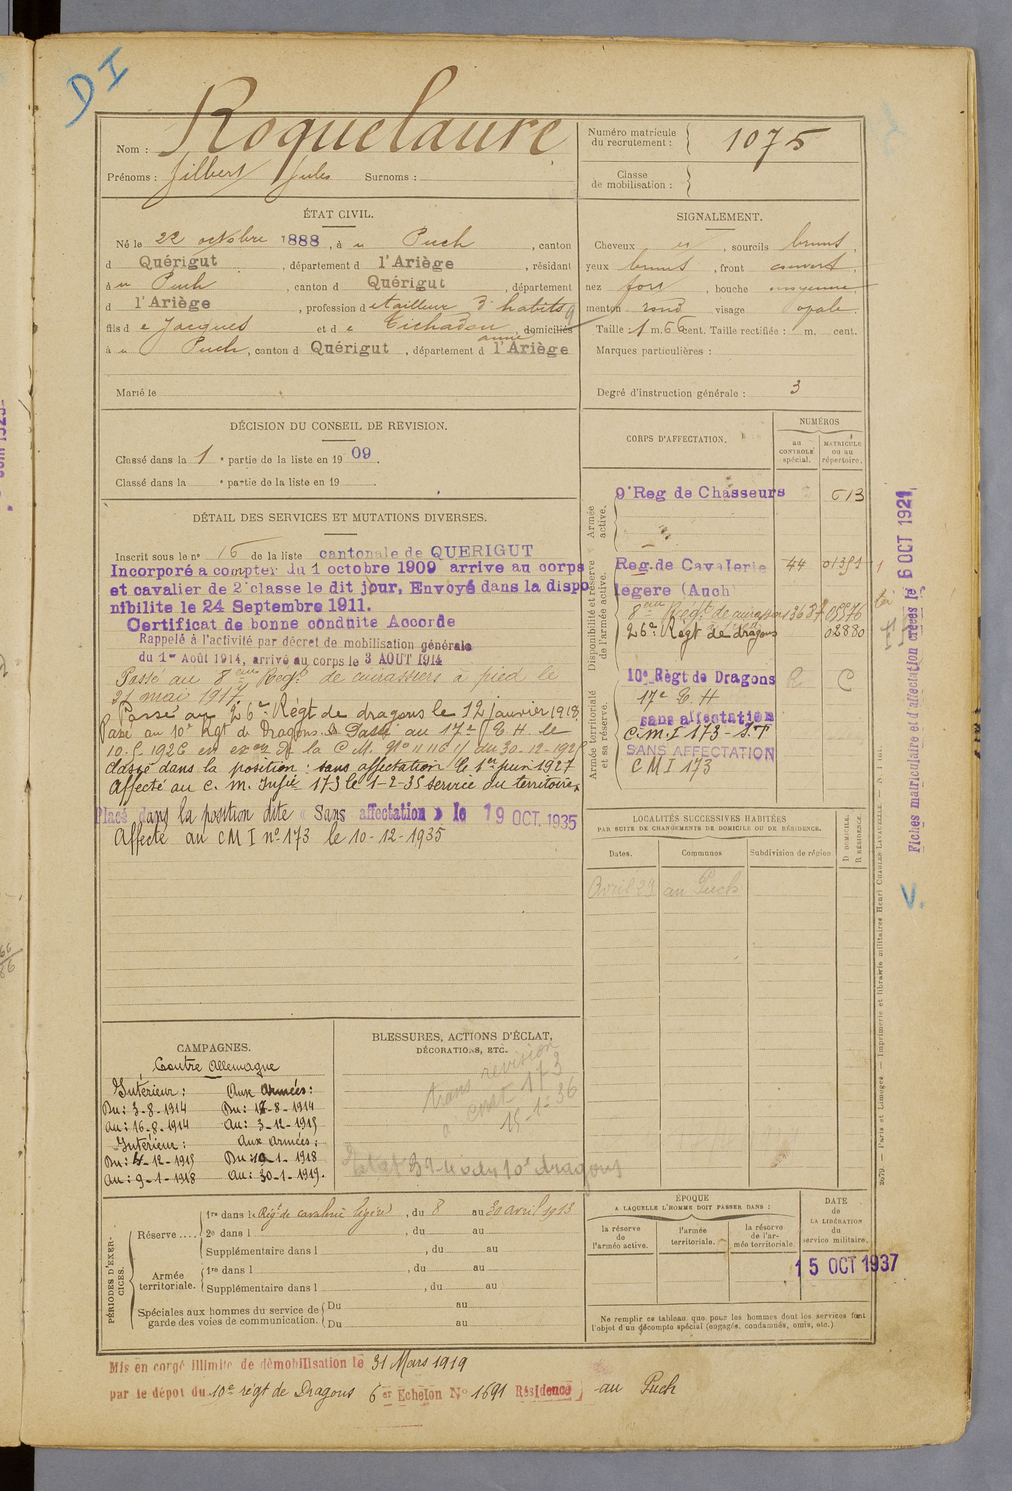 DI
Nom : Roquelaure
Prénoms : Gilbert Jules Surnoms :
Numéro matricule du recrutement : 1075
Classe de mobilisation :
ÉTAT CIVIL.
Né le 22 octobre 1888, à u Puch, canton
d Quérigut, département d l'Ariège, résidant
à u Puch, canton d Quérigut, département
d l'Ariège, profession de tailleur d'habits
fils de Jacques et de Tichadou anne, domiciliés
à u Puch, canton d Quérigut, département d l'Ariège
Marié le
SIGNALEMENT.
Cheveux , sourcils bruns,
yeux bruns, front couvert,
nez fort, bouche moyenne
menton rond visage opale.
Taille : 1 m. 66 cent. Taille rectifiée : m. cent.
Marques particulières :
Degré d'instruction générale : 3
DÉCISION DU CONSEIL DE REVISION.
Classé dans la 1e partie de la liste en 1909.
Classé dans la e partie de la liste en 19 .
DÉTAIL DES SERVICES ET MUTATIONS DIVERSES.
Inscrit sous le n° 16 de la liste cantonale de QUERIGUT
Incorporé a compter du 1 octobre 1909 arrive au corps
et cavalier de 2e classe le dit jour, Envoyé dans la dispo
nibilite le 24 Septembre 1911.
Certificat de bonne conduite Accorde
Rappelé à l'activité par décret de mobilisation générale
du 1er Août 1914, arrivé au corps le 3 AOUT 1914
Passé au 8eme Régt de cuirassiers à pied le
21 mai 1917
Passé au 26e Régt de dragons le 12 janvier 1918.
Passé au 10e Rgt de Dragons. Passé au 17e E. H. le
10.5.1926 en exon de la C.M. N° 11116 du 30-12-1925
Classé dans la position : sans affectation le 1er juin 1927
Affecté au C. M. Infie 173 le 1-2-35 service du territoire.
Placé dans la position dite « Sans affectation » le 19 OCT. 1935
Affecté au CMI n° 173 le 10-12-1935
CORPS D'AFFECTATION.
NUMÉROS
au CONTROLE spécial.
MATRICULE ou au répertoire.
Armée active.
9e Reg de Chasseurs 613
Disponibilité et réserve de l'armée active.
Reg. de Cavalerie 44 01391
legere (Auch)
8eme Régt de cuirassiers 3637 05576
26e Régt de dragons 02880
Armée territoriale et sa réserve.
10e Règt de Dragons
17e E. H
sans affectation
C.M.I 173 - S.T
SANS AFFECTATION
CMI 173
LOCALITÉS SUCCESSIVES HABITÉES
PAR SUITE DE CHANGEMENTS DE DOMICILE OU DE RÉSIDENCE.
Dates. Communes Subdivision de région
D DOMICILE. R RÉSIDENCE.
Avril 29 au Puch
CAMPAGNES.
Contre Allemagne
Intérieur : Aux Armées :
Du : 3-8-1914 Du : 17-8-1914
Au : 16-8-1914 Au : 3-12-1915
Intérieur : Aux Armées :
Du : 4-12-1915 Du : 10-1-1918
Au : 9-1-1918 Au : 30-1-1919.
BLESSURES, ACTIONS D'ÉCLAT,
DÉCORATIONS, ETC.
trans revision
173
15-1-36
dragons
PÉRIODES D'EXERCICES.
Réserve.... 1re dans le Régt de cavalerie légère, du 8 au 30 avril 1913
2e dans l , du au
Supplémentaire dans l , du au
Armée territoriale. 1re dans l , du au
Supplémentaire dans l , du au
Spéciales aux hommes du service de garde des voies de communication. Du au
Du au
ÉPOQUE
A LAQUELLE L'HOMME DOIT PASSER DANS :
la réserve de l'armée active.
l'armée territoriale.
la réserve de l'armée territoriale.
DATE de LA LIBÉRATION du service militaire.
15 OCT 1937
Ne remplir ce tableau que pour les hommes dont les services font
l'objet d'un décompte spécial (engagés, condamnés, omis, etc.)
Mis en congé illimité de démobilisation le 31 Mars 1919
par le dépôt du 10e régt de Dragons 6er Echelon N° 1691 Résidence au Puch
Fiches matriculaire et d'affectation créées le 6 OCT 1921
V.
Paris et Limoges. — Imprimerie et librairie militaires Henri Charles-Lavauzelle.